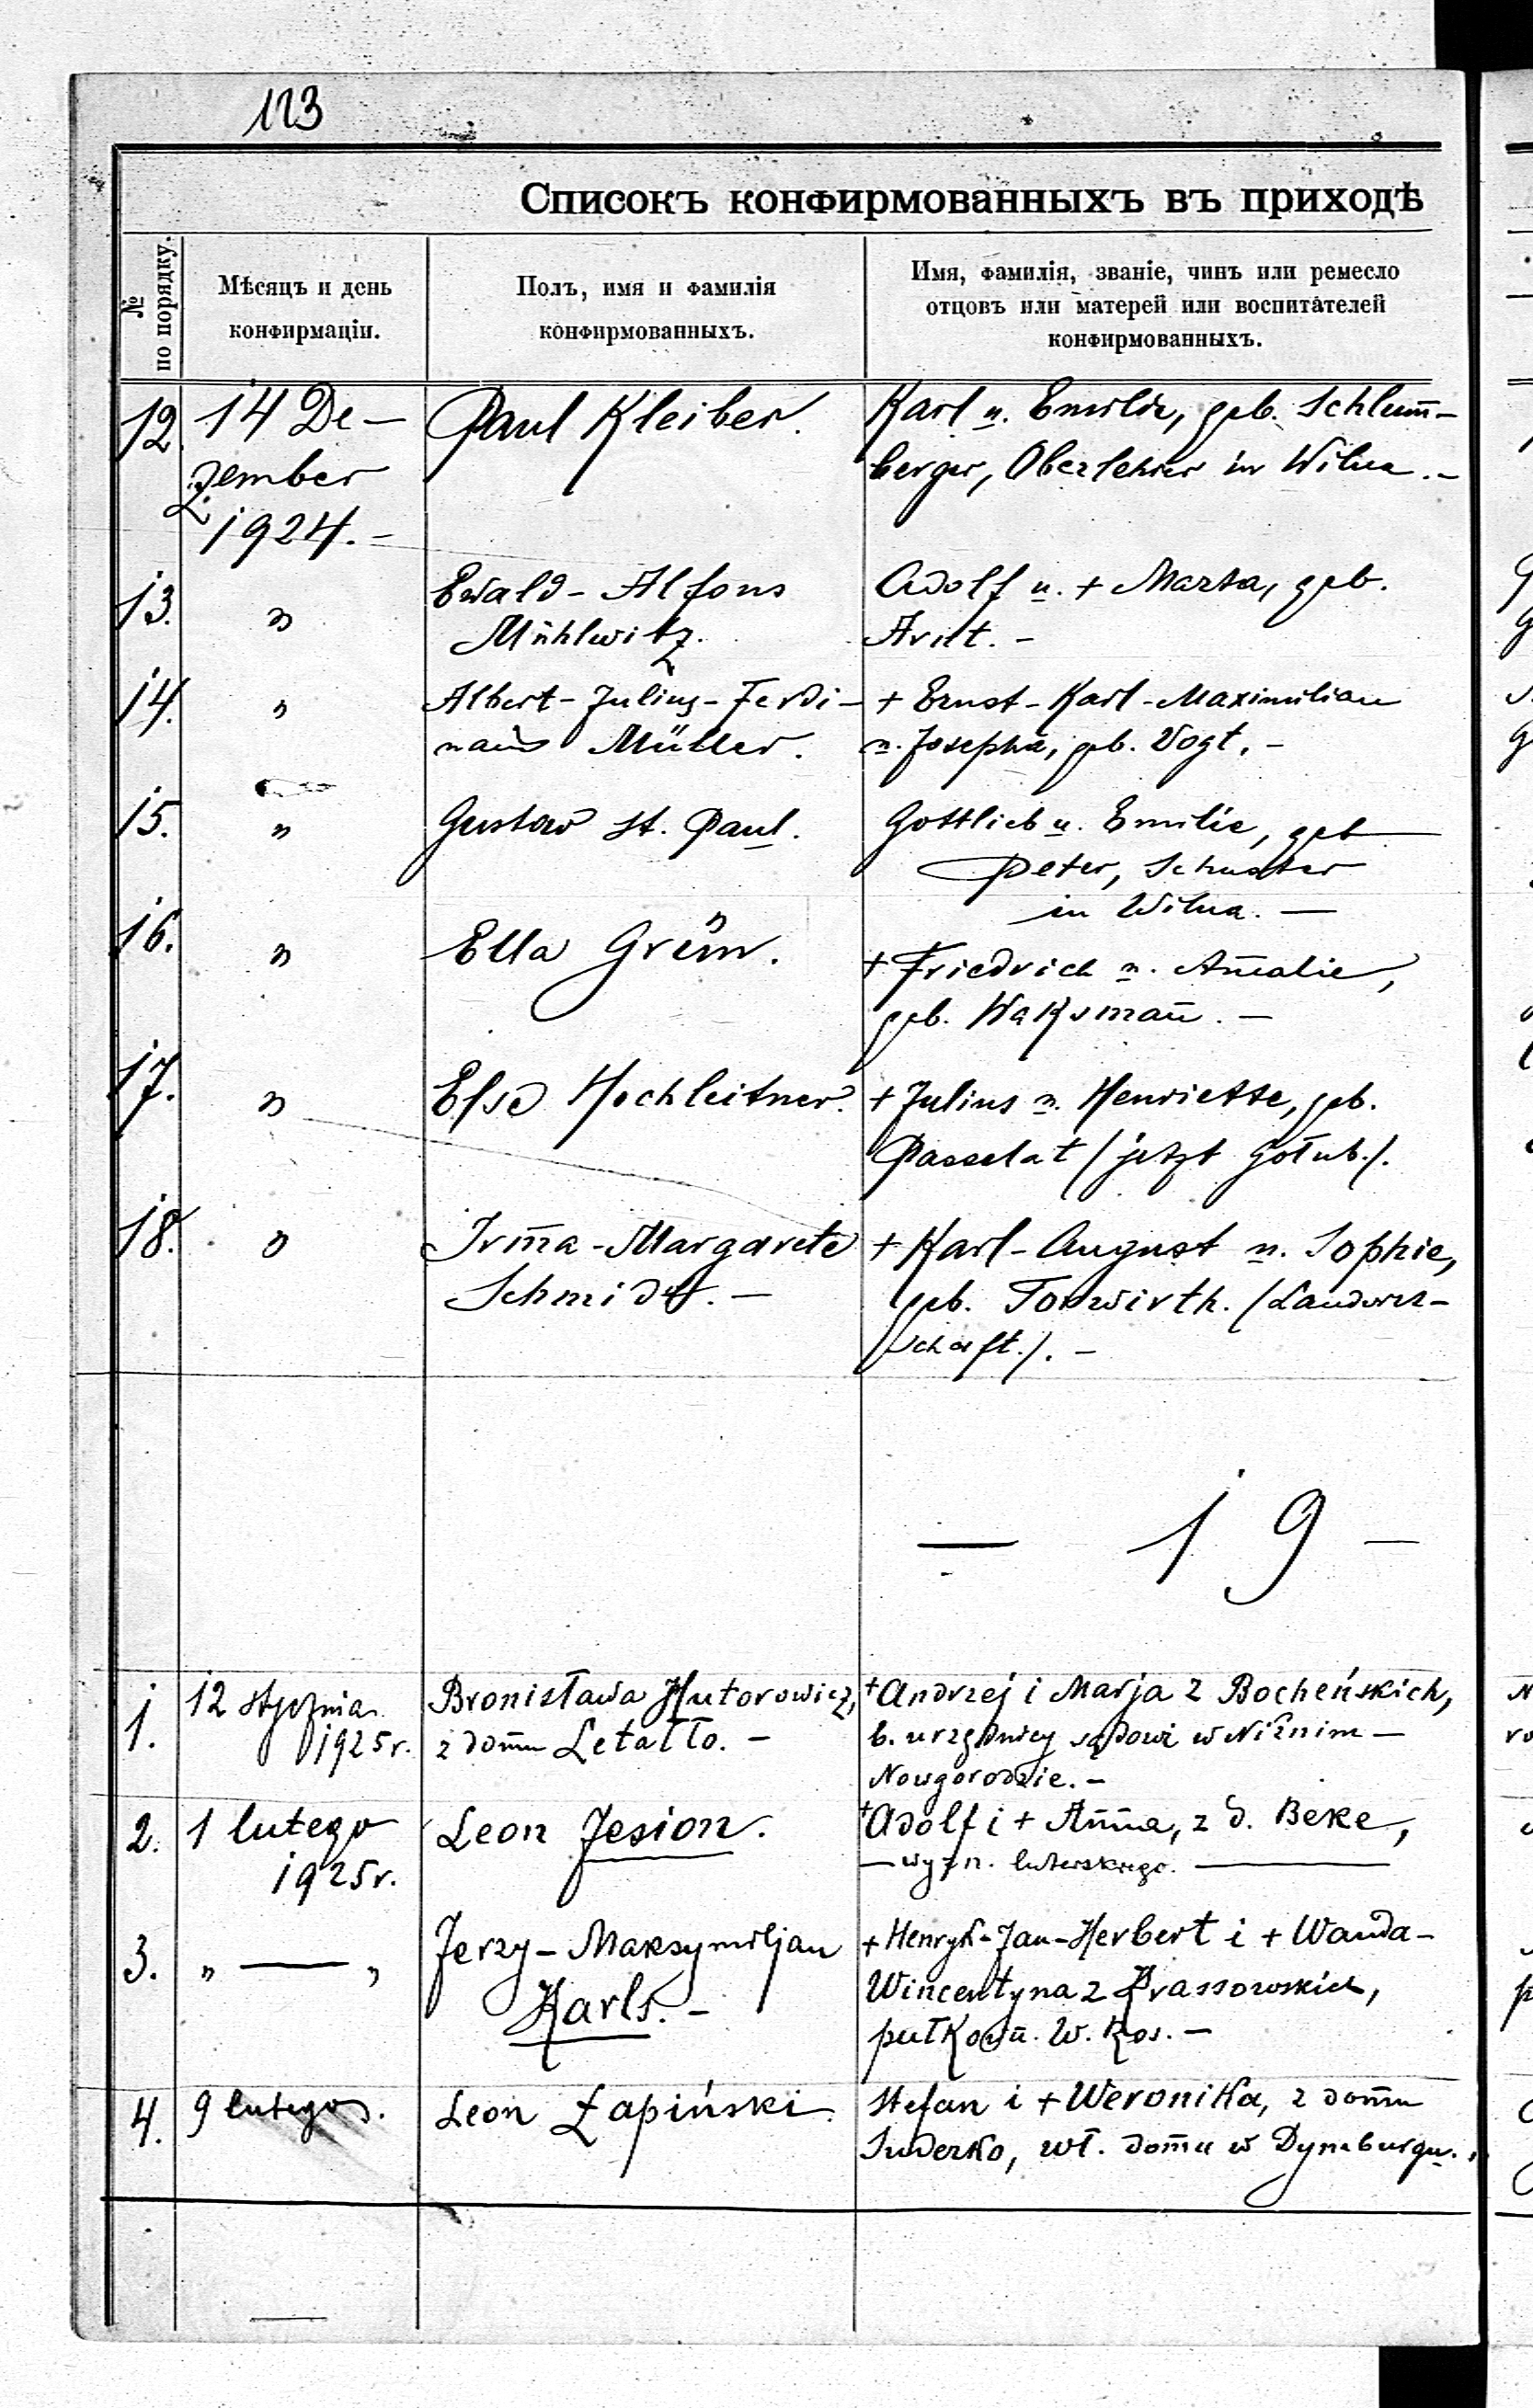 123
Списокъ конфирмованныхъ въ приходѣ
№ по порядку.
Мѣсяцъ и день
конфирмаціи.
Полъ, имя и фамилія
конфирмованныхъ.
Имя, фамилія, званіе, чинъ или ремесло
отцовъ или матерей или воспитателей
конфирмованныхъ.
12. 14 De- Paul Kleiber. Karl u. Emilie, geb. Schlum̅-
zember berger, Oberlehrer in Wilna.-
1924.-
13. " Ewald-Alfons Adolf u. + Marta, geb.
Mühlwitz. Arnt.-
14. " Albert-Julius-Ferdi- + Ernst-Karl-Maximilian
nand Müller. u. Josepha, geb. Vogt.-
15. " Gustav St. Paul. Gottlieb u. Emilie, geb
Peter, Schuster
in Wilna.—
16. " Ella Grün. + Friedrich u. Am̅alie,
geb. Waksman̅.—
17. " Else Hochleitner. + Julius u. Henriette, geb.
Passelat /jetzt Gołub./.
18. " Irm̅a-Margarete + Karl-August u. Sophie,
Schmidt.— geb. Torwirth. /Landwirt-
schaft./.-
— 19 —
1. 12 stycznia Bronisława Hutorowicz, + Andrzej i Marja z Bocheńskich,
1925r. z dom̅u Letałło.- b. urzędnicy sądowi w Niżnim-
Nowgorodzie.-
2. 1 lutego Leon Jesion. + Adolf i + An̅na, z d. Beke,
1925r. — wyzn. luterskiego. —
3. " — " Jerzy-Maksymiljan + Henryk-Jan-Herbert i + Wanda-
Karls.- Wincentyna z Krassowskich,
pułkown̅. W. Ros.-
4. 9 lutego Leon Łapiński. Stefan i + Weronika, z dom̅u
Suderko, wł. dom̅u w Dyneburgu.